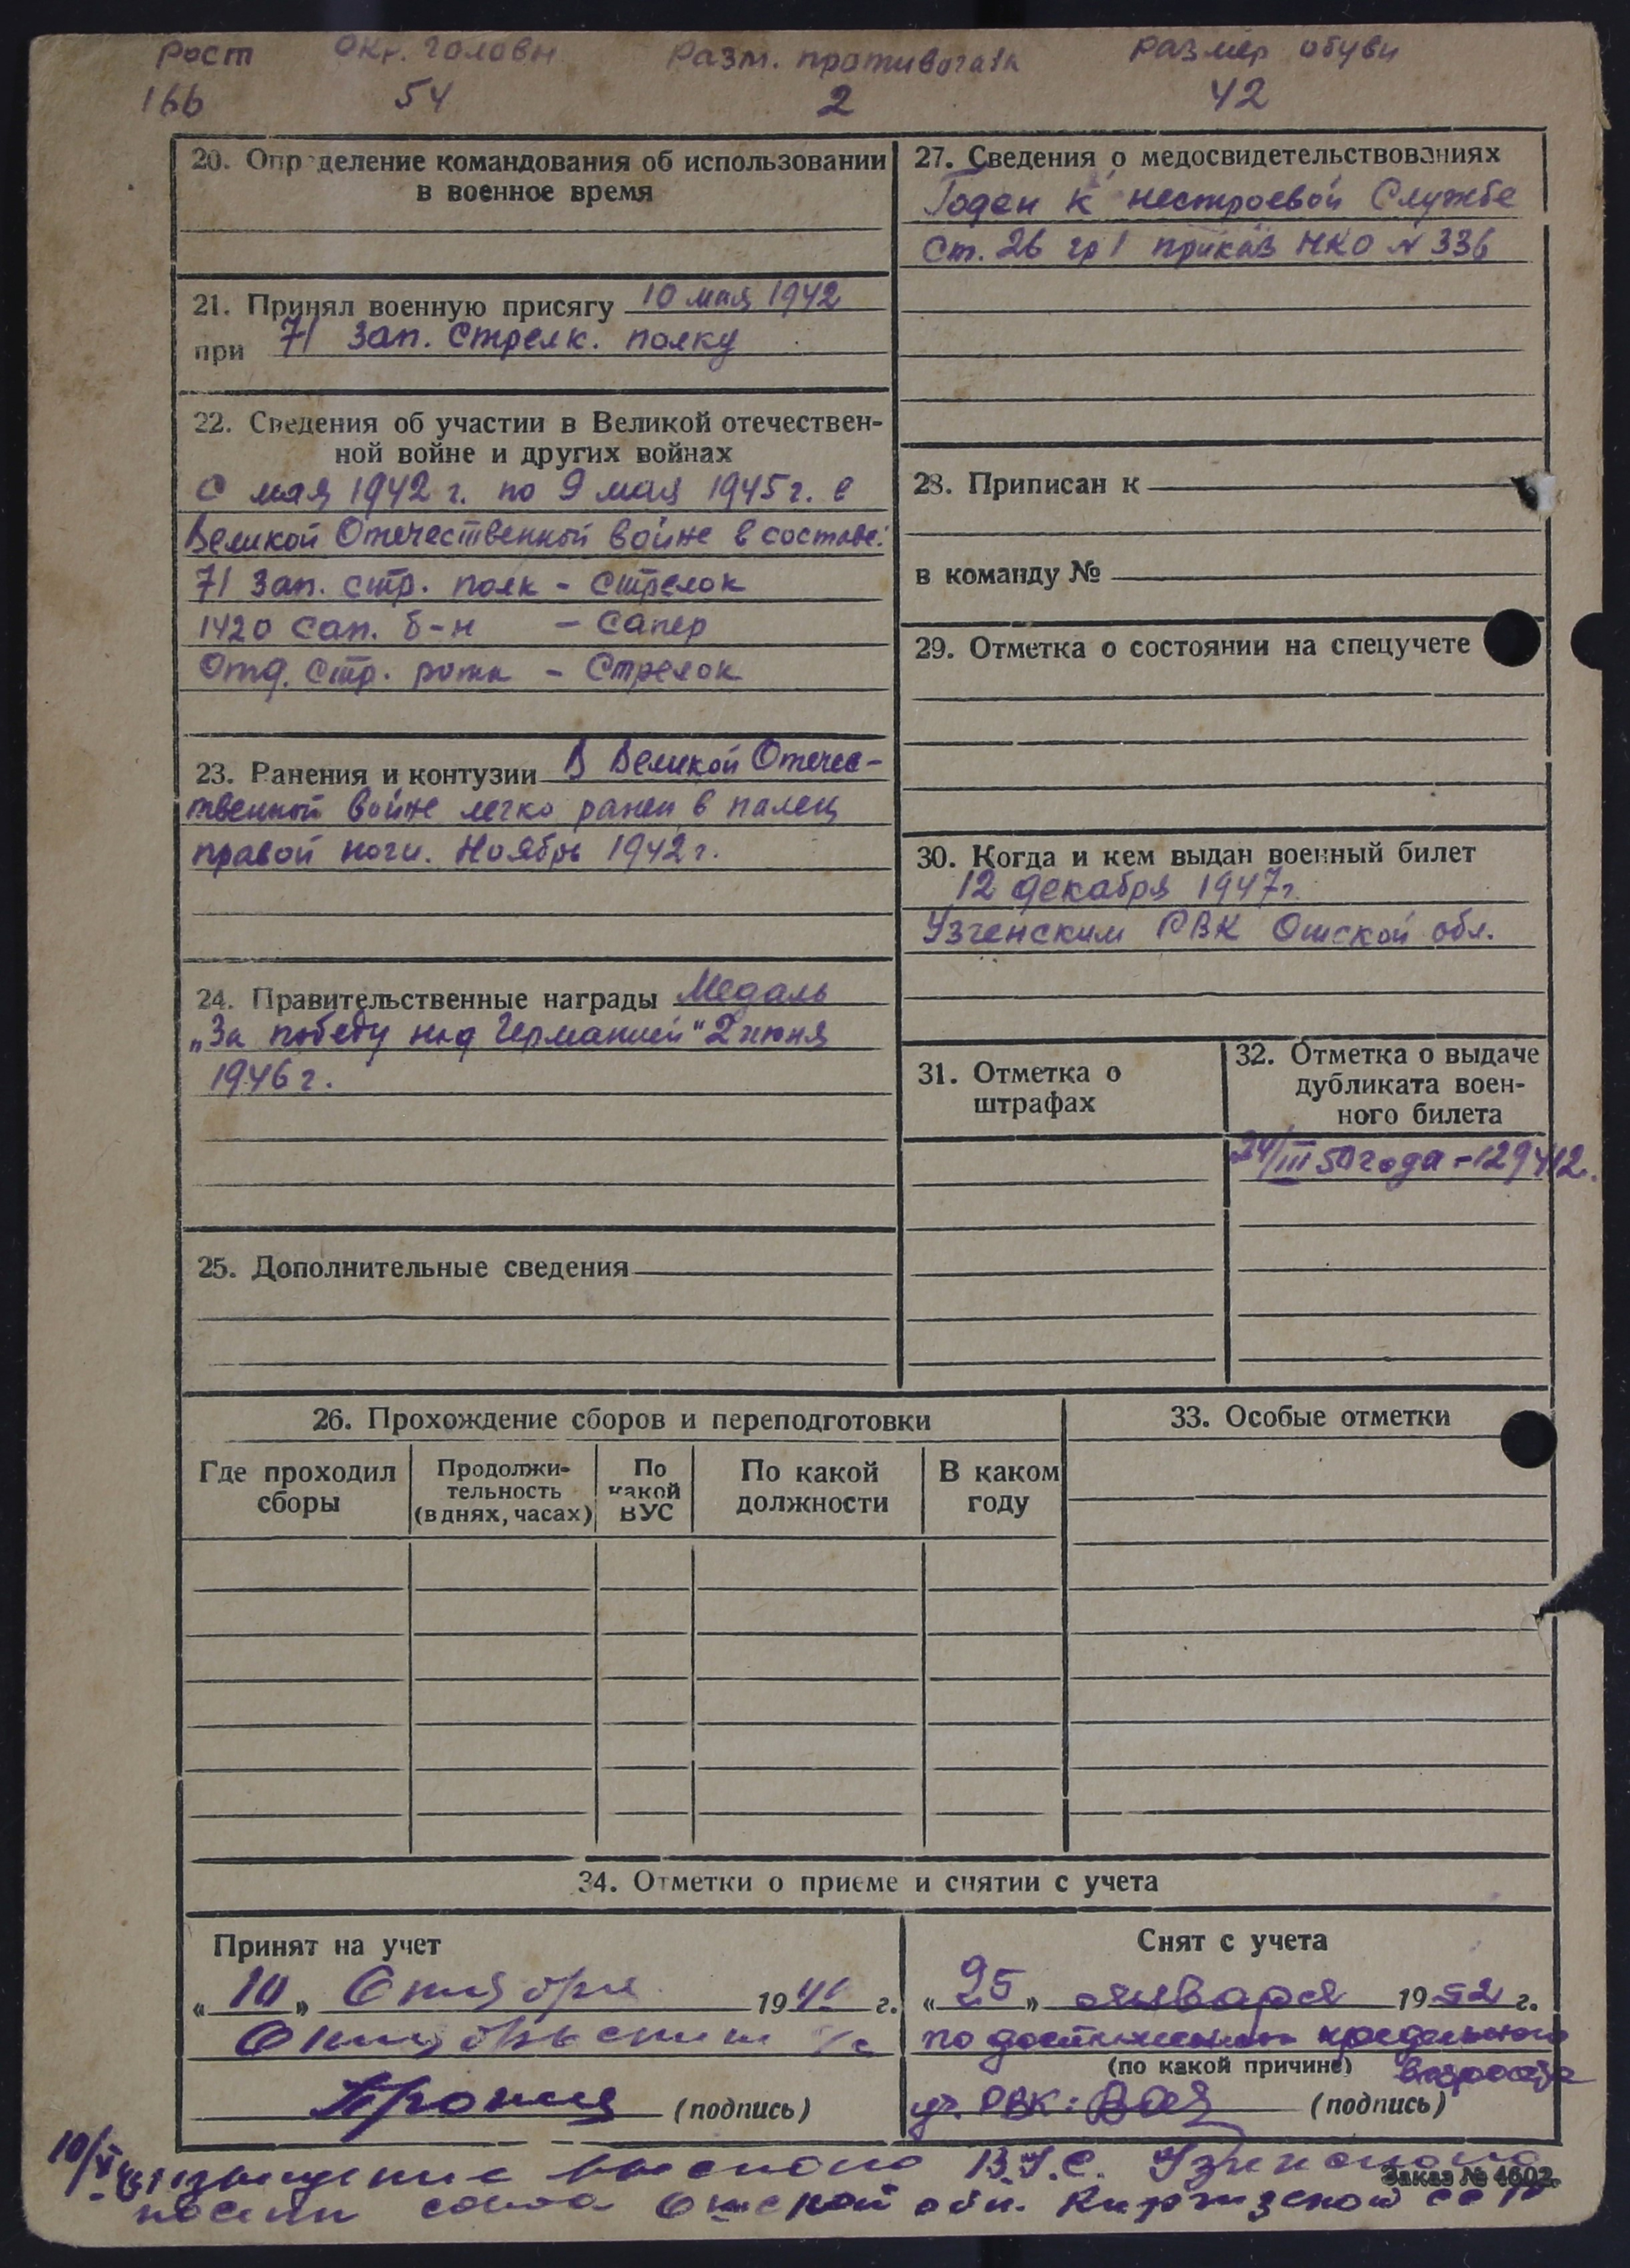 Рост Окр. головы Разм. противогаза Размер обуви
166 54 2 42
20. Определение командования об использовании
в военное время
21. Принял военную присягу 10 мая 1942
при 71 зап. стрелк. полку
22. Сведения об участии в Великой отечествен-
ной войне и других войнах
С мая 1942 г. по 9 мая 1945 г. в
Великой Отечественной войне в составе:
71 зап. стр. полк - стрелок
1420 сап. б-н - сапер
Отд. стр. рота - стрелок
23. Ранения и контузии В Великой Отечес-
твенной войне легко ранен в палец
правой ноги. Ноябрь 1942 г.
24. Правительственные награды Медаль
„За победу над Германией" 2 июня
1946 г.
25. Дополнительные сведения
27. Сведения о медосвидетельствованиях
Годен к нестроевой Службе
Ст. 26 гр 1 приказ НКО № 336
28. Приписан к
в команду №
29. Отметка о состоянии на спецучете
30. Когда и кем выдан военный билет
12 декабря 1947 г.
Узгенским РВК Ошской обл.
31. Отметка о
штрафах
32. Отметка о выдаче
дубликата воен-
ного билета
24/III 50 года - 129412.
26. Прохождение сборов и переподготовки
Где проходил
сборы
Продолжи-
тельность
(в днях, часах)
По
какой
ВУС
По какой
должности
В каком
году
33. Особые отметки
34. Отметки о приеме и снятии с учета
Принят на учет
„10" Октября 19 г.
Октябрьским
(подпись)
Снят с учета
„25" января 1952 г.
по достижении предельного
(по какой причине) возраста
РВК: (подпись)
10/X извещение выслано В.У.С. Узгенского
Ошской обл. Киргизской ССР
Заказ № 4602.